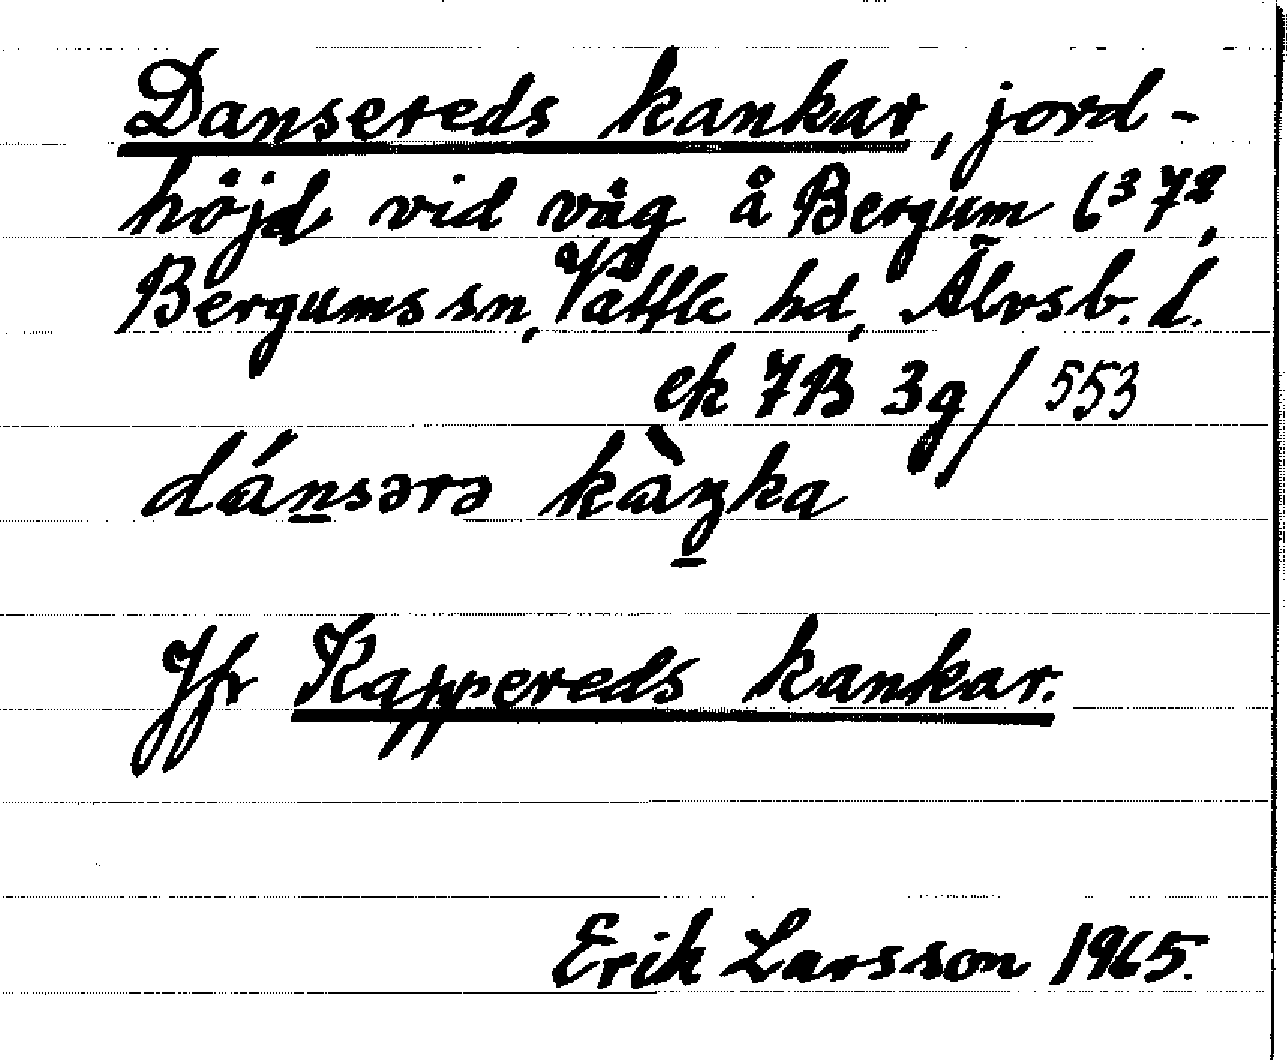 Dansereds kankar, jord-
höjd vid väg å Bergum 6³ 7²,
Bergums sn, Vättle hd, Älvsb. l.
ek 7B 3g/553
dánsərə kàŋka
Jfr Kappereds kankar.
Erik Larsson 1965.